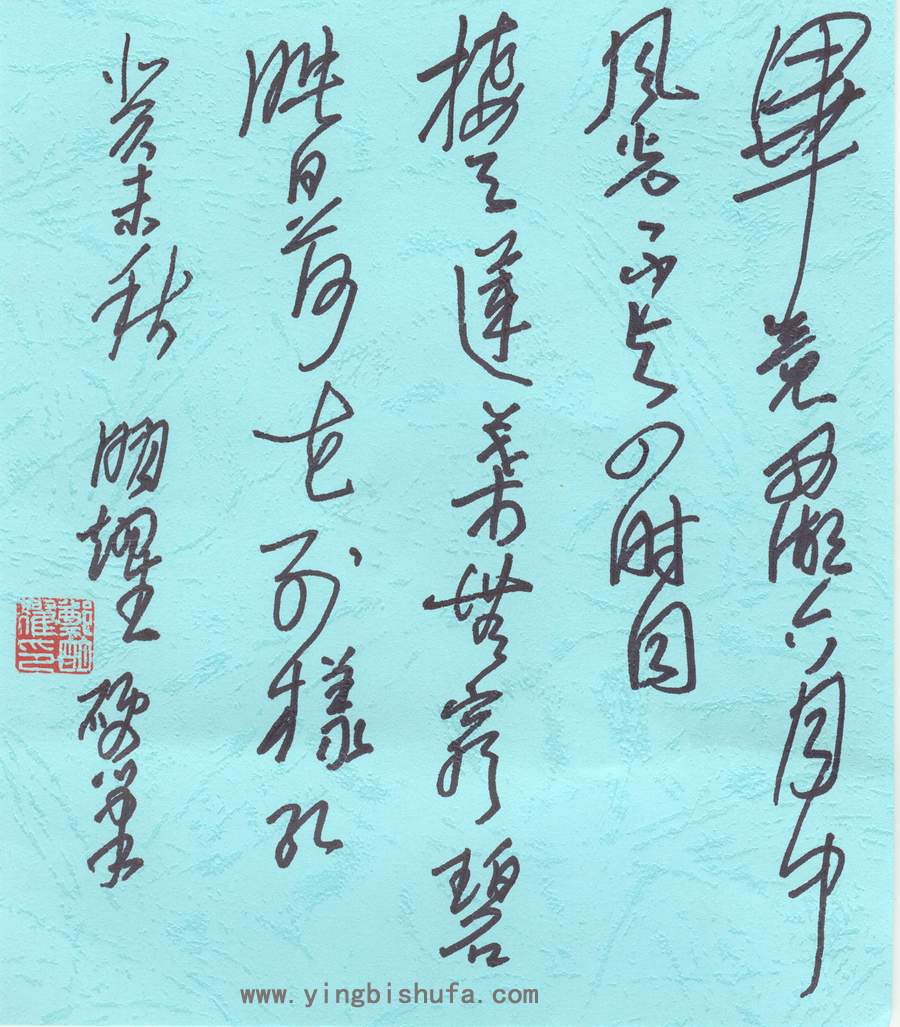 畢竟西湖六月中
風光不与四时同
接天蓮葉無窮碧
映日荷花别樣红
癸未秋 明耀 硬筆
鄭明耀印
www.yingbishufa.com